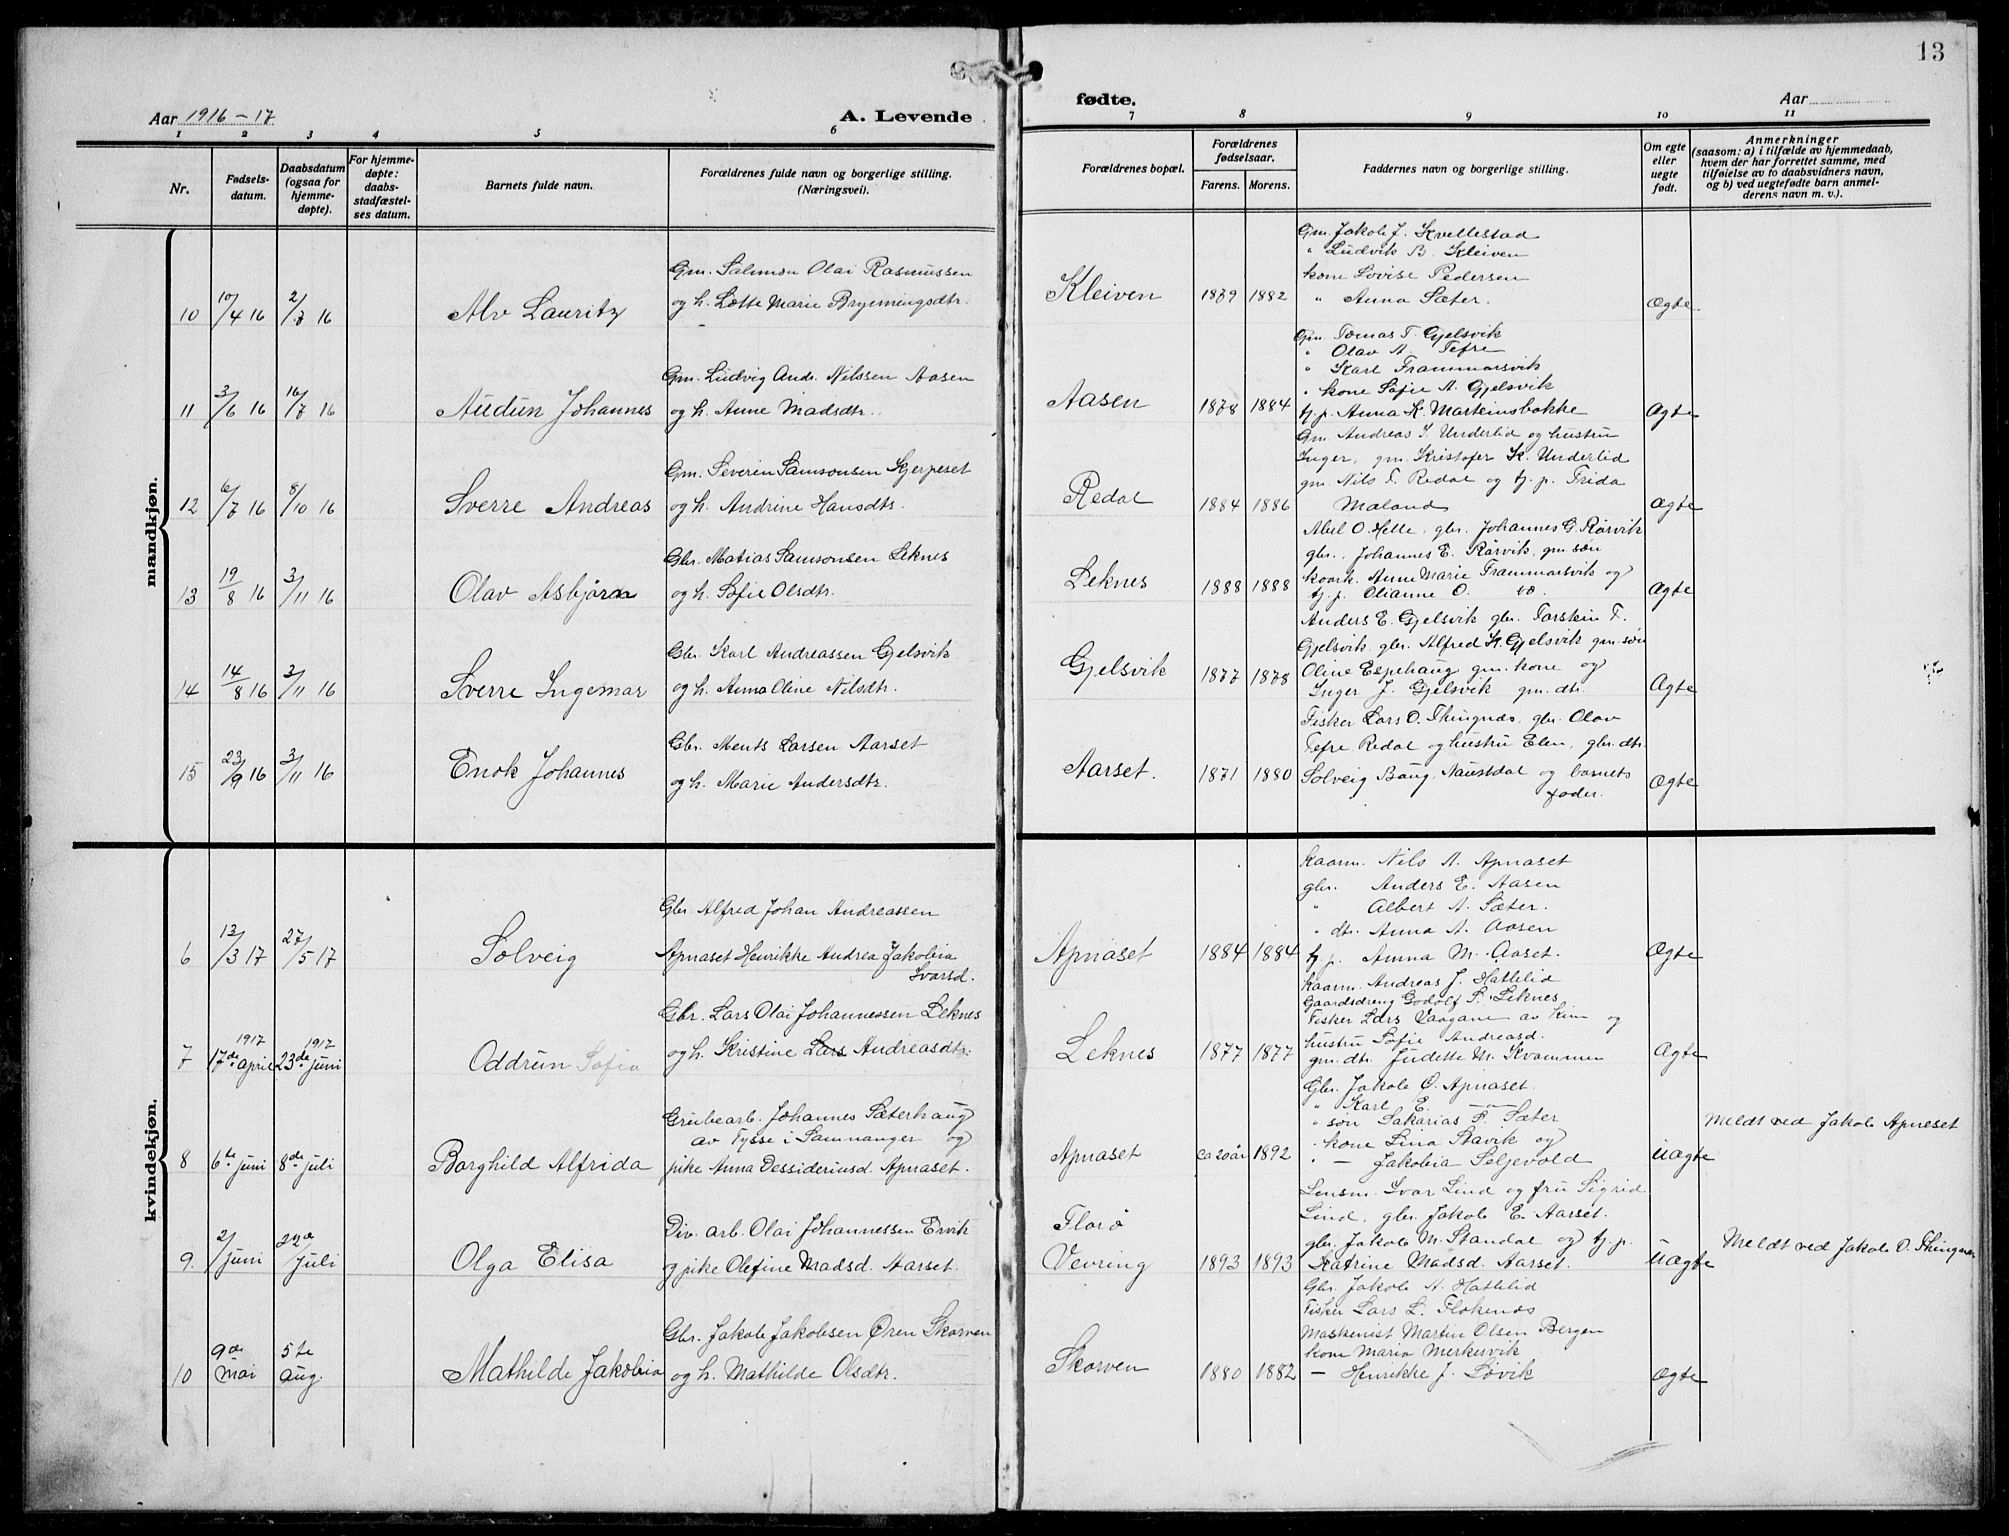 13
Aar 1916-17
A. Levende
fødte.
Aar
1 2 3 4 5 6
7 8 9 10 11
Nr.
Fødsels-
datum.
Daabsdatum
(ogsaa for
hjemme-
døpte).
For hjemme-
døpte:
daabs-
stadfæstel-
ses datum.
Barnets fulde navn.
Forældrenes fulde navn og borgerlige stilling.
(Næringsvei).
Forældrenes bopæl.
Forældrenes
fødselsaar.
Farens. Morens.
Faddernes navn og borgerlige stilling.
Om egte
eller
uegte
født.
Anmerkninger
(saasom: a) i tilfælde av hjemmedaab,
hvem der har forrettet samme, med
tilføielse av to daabsvidners navn,
og b) ved uegtefødte barn anmel-
derens navn m. v.).
mandkjøn.
10 10/4 16 2/7 16 Alv Lauritz
Gm. Salmon Olai Rasmussen
og h. Lotte Marie Brynningsdtr.
Kleiven 1879 1882
Gm. Jakob J. Kvellestad
" Ludvik B. Kleiven
kone Lovise Pedersen
" Anna Sæter.
Ægte
11 3/6 16 16/7 16 Audun Johannes
Gm. Ludvig Andr. Nilssen Aasen
og h. Anne Madsdtr.
Aasen 1878 1884
Gm. Tomas T. Gjelsvik
" Olav A. Tefre
" Karl Frammarsvik
" kone Sofie A. Gjelsvik
tj. p. Anna K. Marteinsbakke
Ægte
12 6/7 16 8/10 16 Sverre Andreas
Gm. Severin Samsonsen Kjerpeset
og h. Andrine Hansdtr.
Redal 1884 1886
Gm. Andreas I. Underlid og hustru
Inger, gm. Kristofer K. Underlid
gm. Nils T. Redal og tj. p. Frida
Maland
Ægte
13 19/8 16 3/11 16 Olav Asbjørn
Gbr. Matias Samsonsen Leknes
og h. Sofie Olsdtr.
Leknes 1888 1888
Abel O. Helle, gbr. Johannes G. Rørvik
gbr., Johannes E. Rørvik, gm. søn
kaark. Anne Marie Frammarsvik og
tj. p. Olianne O. do.
Ægte
14 14/8 16 3/11 16 Sverre Ingemar
Gbr. Karl Andreassen Gjelsvik
og h. Anna Oline Nilsdtr.
Gjelsvik 1877 1878
Anders E. Gjelsvik gbr. Torstein T.
Gjelsvik gbr. Alfred K. Gjelsvik gm. søn
Oline Espehaug gm. kone og
Inger J. Gjelsvik gm. dtr.
Ægte
15 23/9 16 3/11 16 Enok Johannes
Gbr. Ments Larsen Aarset
og h. Marie Andersdtr.
Aarset. 1871 1880
Fisker Lars O. Thingnæs, gbr. Olav
Tefre Redal og hustru Elen, gbr. dtr.
Solveig Baug, Naustdal og barnets
fader.
Ægte
kvindekjøn.
6 13/3 17 27/5 17 Solveig
Gbr. Alfred Johan Andreassen
Apnaset Henrikke Andrea Jakobia
Ivarsd.
Apnaset 1884 1884
Kaarm. Nils A. Apnaset
gbr. Anders E. Aasen
" Albert A. Sæter.
" dtr. Anna A. Aasen
tj. p. Anna M. Aaset.
Ægte
7 1917 17de april 1917 23de juni Oddrun Sofia
Gbr. Lars Olai Johannessen Leknes
og h. Kristine Lars Andreasdtr.
Leknes 1877 1877
Kaarm. Andreas J. Hatlelid
Gaardsdreng Godolf S. Leknes
Fisker Lars Vaagane av Kinn og
hustru Sofie Andreasd.
gm. dtr. Judette M. Kvammen
Ægte
8 6te juni 8de juli Borghild Alfrida
Grubearb. Johannes Sæterhaug
av Tysse i Samnanger og
pike Anna Dessideriusd. Apnaset.
Apnaset ca 20 år 1892
Gbr. Jakob O. Apnaset.
" Karl E. —"—
" søn Sakarias F. Sæter
" kone Lina Stavik og
" — Jakobia Seljevold
Uægte
Meldt ved Jakob Apneset
9. 2/juni 22de/juli Olga Elisa
Div. arb. Olai Johannessen Ervik
og pike Olefine Madsd. Aarset.
Florø
Vevring 1893 1893
Lensm. Ivar Lind og fru Sigrid
Lind, gbr. Jakob E. Aarset.
gbr. Jakob M. Standal og tj. p.
Katrine Madsd. Aarset.
Uægte
Meldt ved Jakob O. Thingnes
10 9de mai 5te aug. Mathilde Jakobia
Gbr. Jakob Jakobsen Øren Skorven
og h. Mathilde Olsdtr.
Skorven 1880 1882
Gbr. Jakob A. Hatlelid
Fisker Lars L. Flokenæs
Maskenist Martin Olsen Bergen
kone Maria Merkesvik
— Henrikke J. Løvik
Ægte